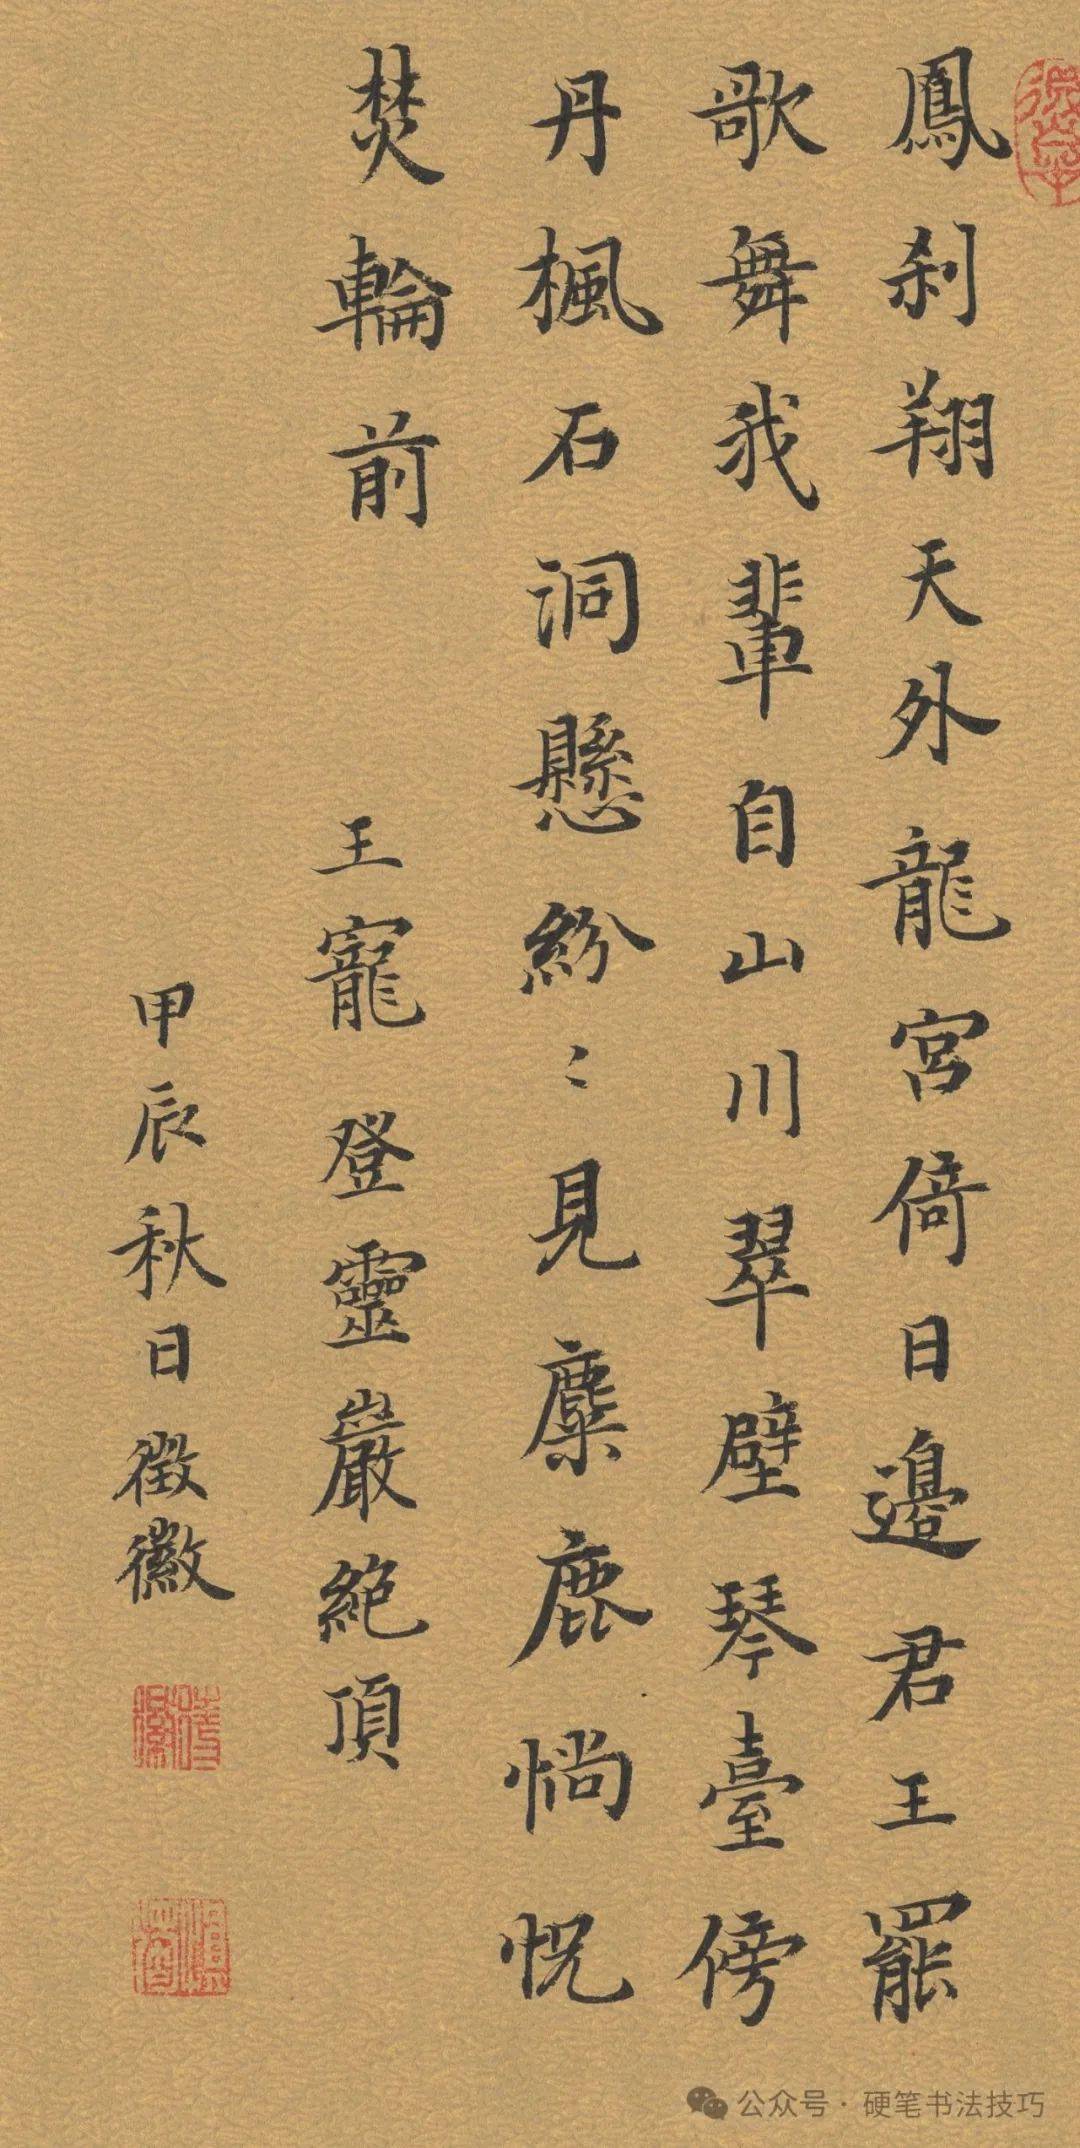 鳳刹翔天外龍宮倚日邊君王罷
歌舞我輩自山川翠壁琴臺傍
丹楓石洞懸紛〻見麋鹿惝怳
焚輪前
王寵登靈巖絶頂
甲辰秋日徵徽
公众号·硬笔书法技巧